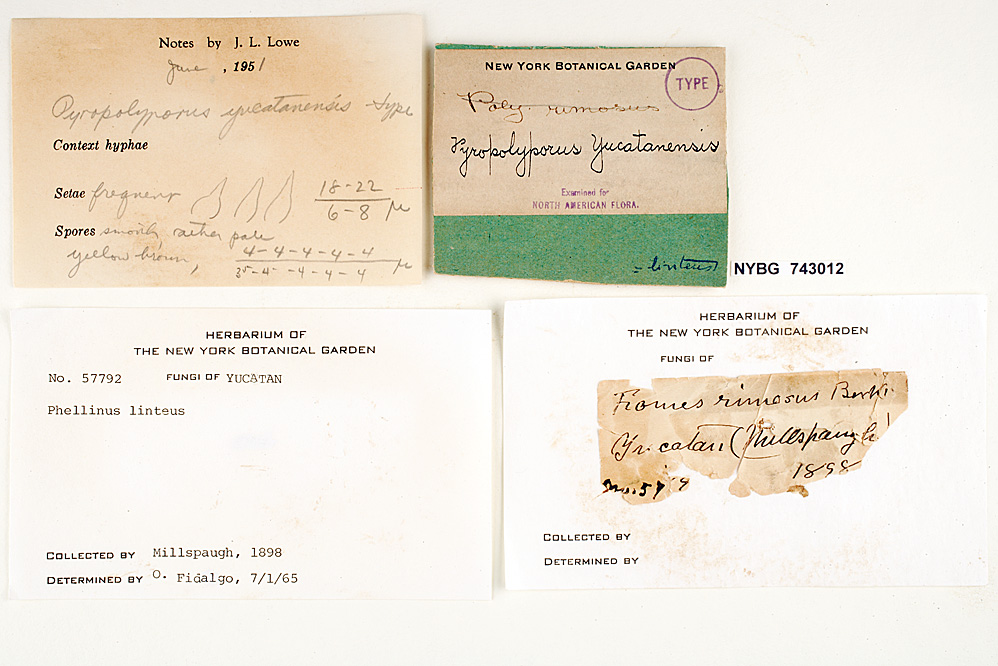 Notes by J. L. Lowe
June, 1951
Pyropolyporus yucatanensis type
Context hyphae
Setae frequent 18-22
6-8 μ
Spores smooth, rather pale
yellow brown, 4-4-4-4-4
-4-4-4-4 μ
NEW YORK BOTANICAL GARDEN
TYPE
Poly rimosus
Pyropolyporus Yucatanensis
Examined for
NORTH AMERICAN FLORA.
= linteus
NYBG 743012
HERBARIUM OF
THE NEW YORK BOTANICAL GARDEN
No. 57792 FUNGI OF YUCATAN
Phellinus linteus
COLLECTED BY Millspaugh, 1898
DETERMINED BY O. Fidalgo, 7/1/65
HERBARIUM OF
THE NEW YORK BOTANICAL GARDEN
FUNGI OF
Fomes rimosus Berk.
Yucatan (Millspaugh)
1898
COLLECTED BY
DETERMINED BY